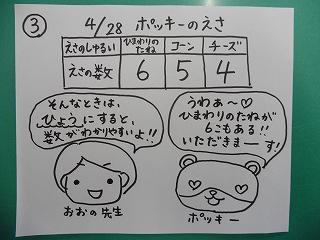 ③
4/28 ポッキーのえさ
えさのしゅるい ひまわりのたね コーン チーズ
えさの数 6 5 4
そんなときは、
ひょうにすると、
数がわかりやすいよ!!
うわぁ〜♡
ひまわりのたねが
6こもある!!
いただきまーす!
おおの先生
ポッキー